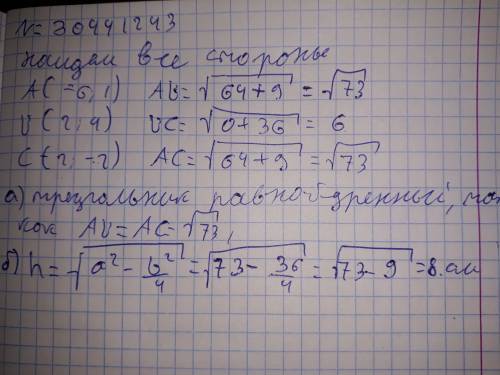 N=30441243
найдем все стороны
A(-6; 1) AB=√64+9 = √73
B(2; 4) BC=√0+36 = 6
C(2; -2) AC=√64+9 = √73
а) треугольник равнобедренный, так
как AB=AC=√73,
б) h=√a²-b²/4=√73-36/4=√73-9=8.ам